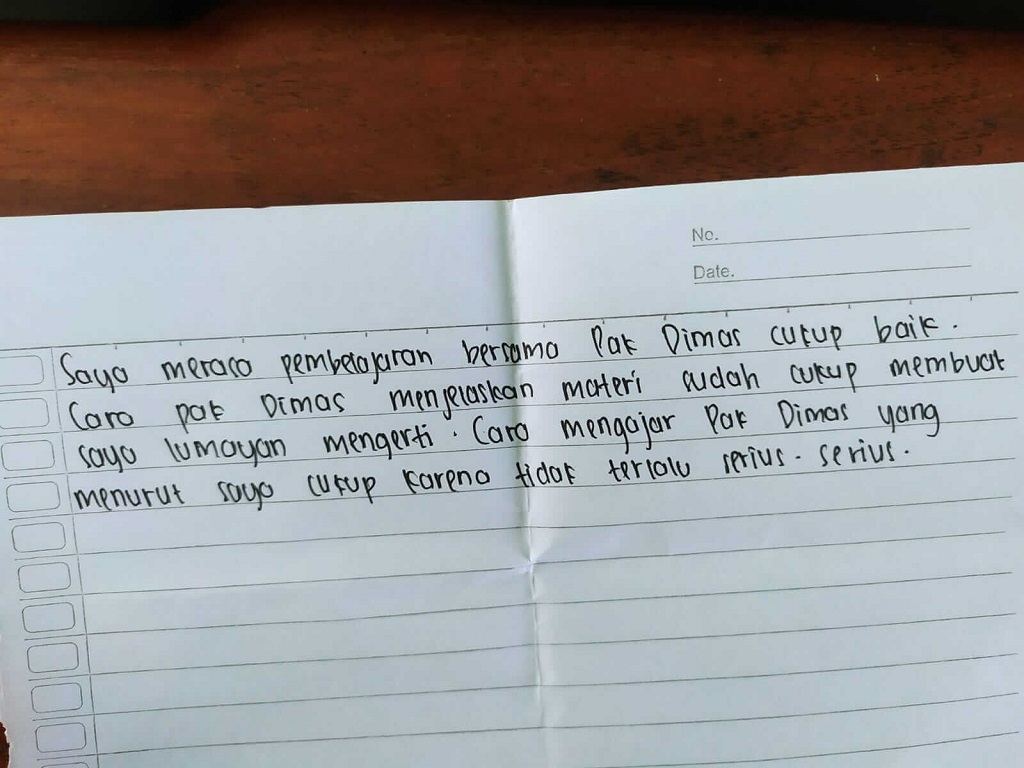 No.
Date.
Saya merasa pembelajaran bersama Pak Dimas cukup baik.
Cara pak Dimas menjelaskan materi sudah cukup membuat
saya lumayan mengerti. Cara mengajar Pak Dimas yang
menurut saya cukup karena tidak terlalu serius-serius.